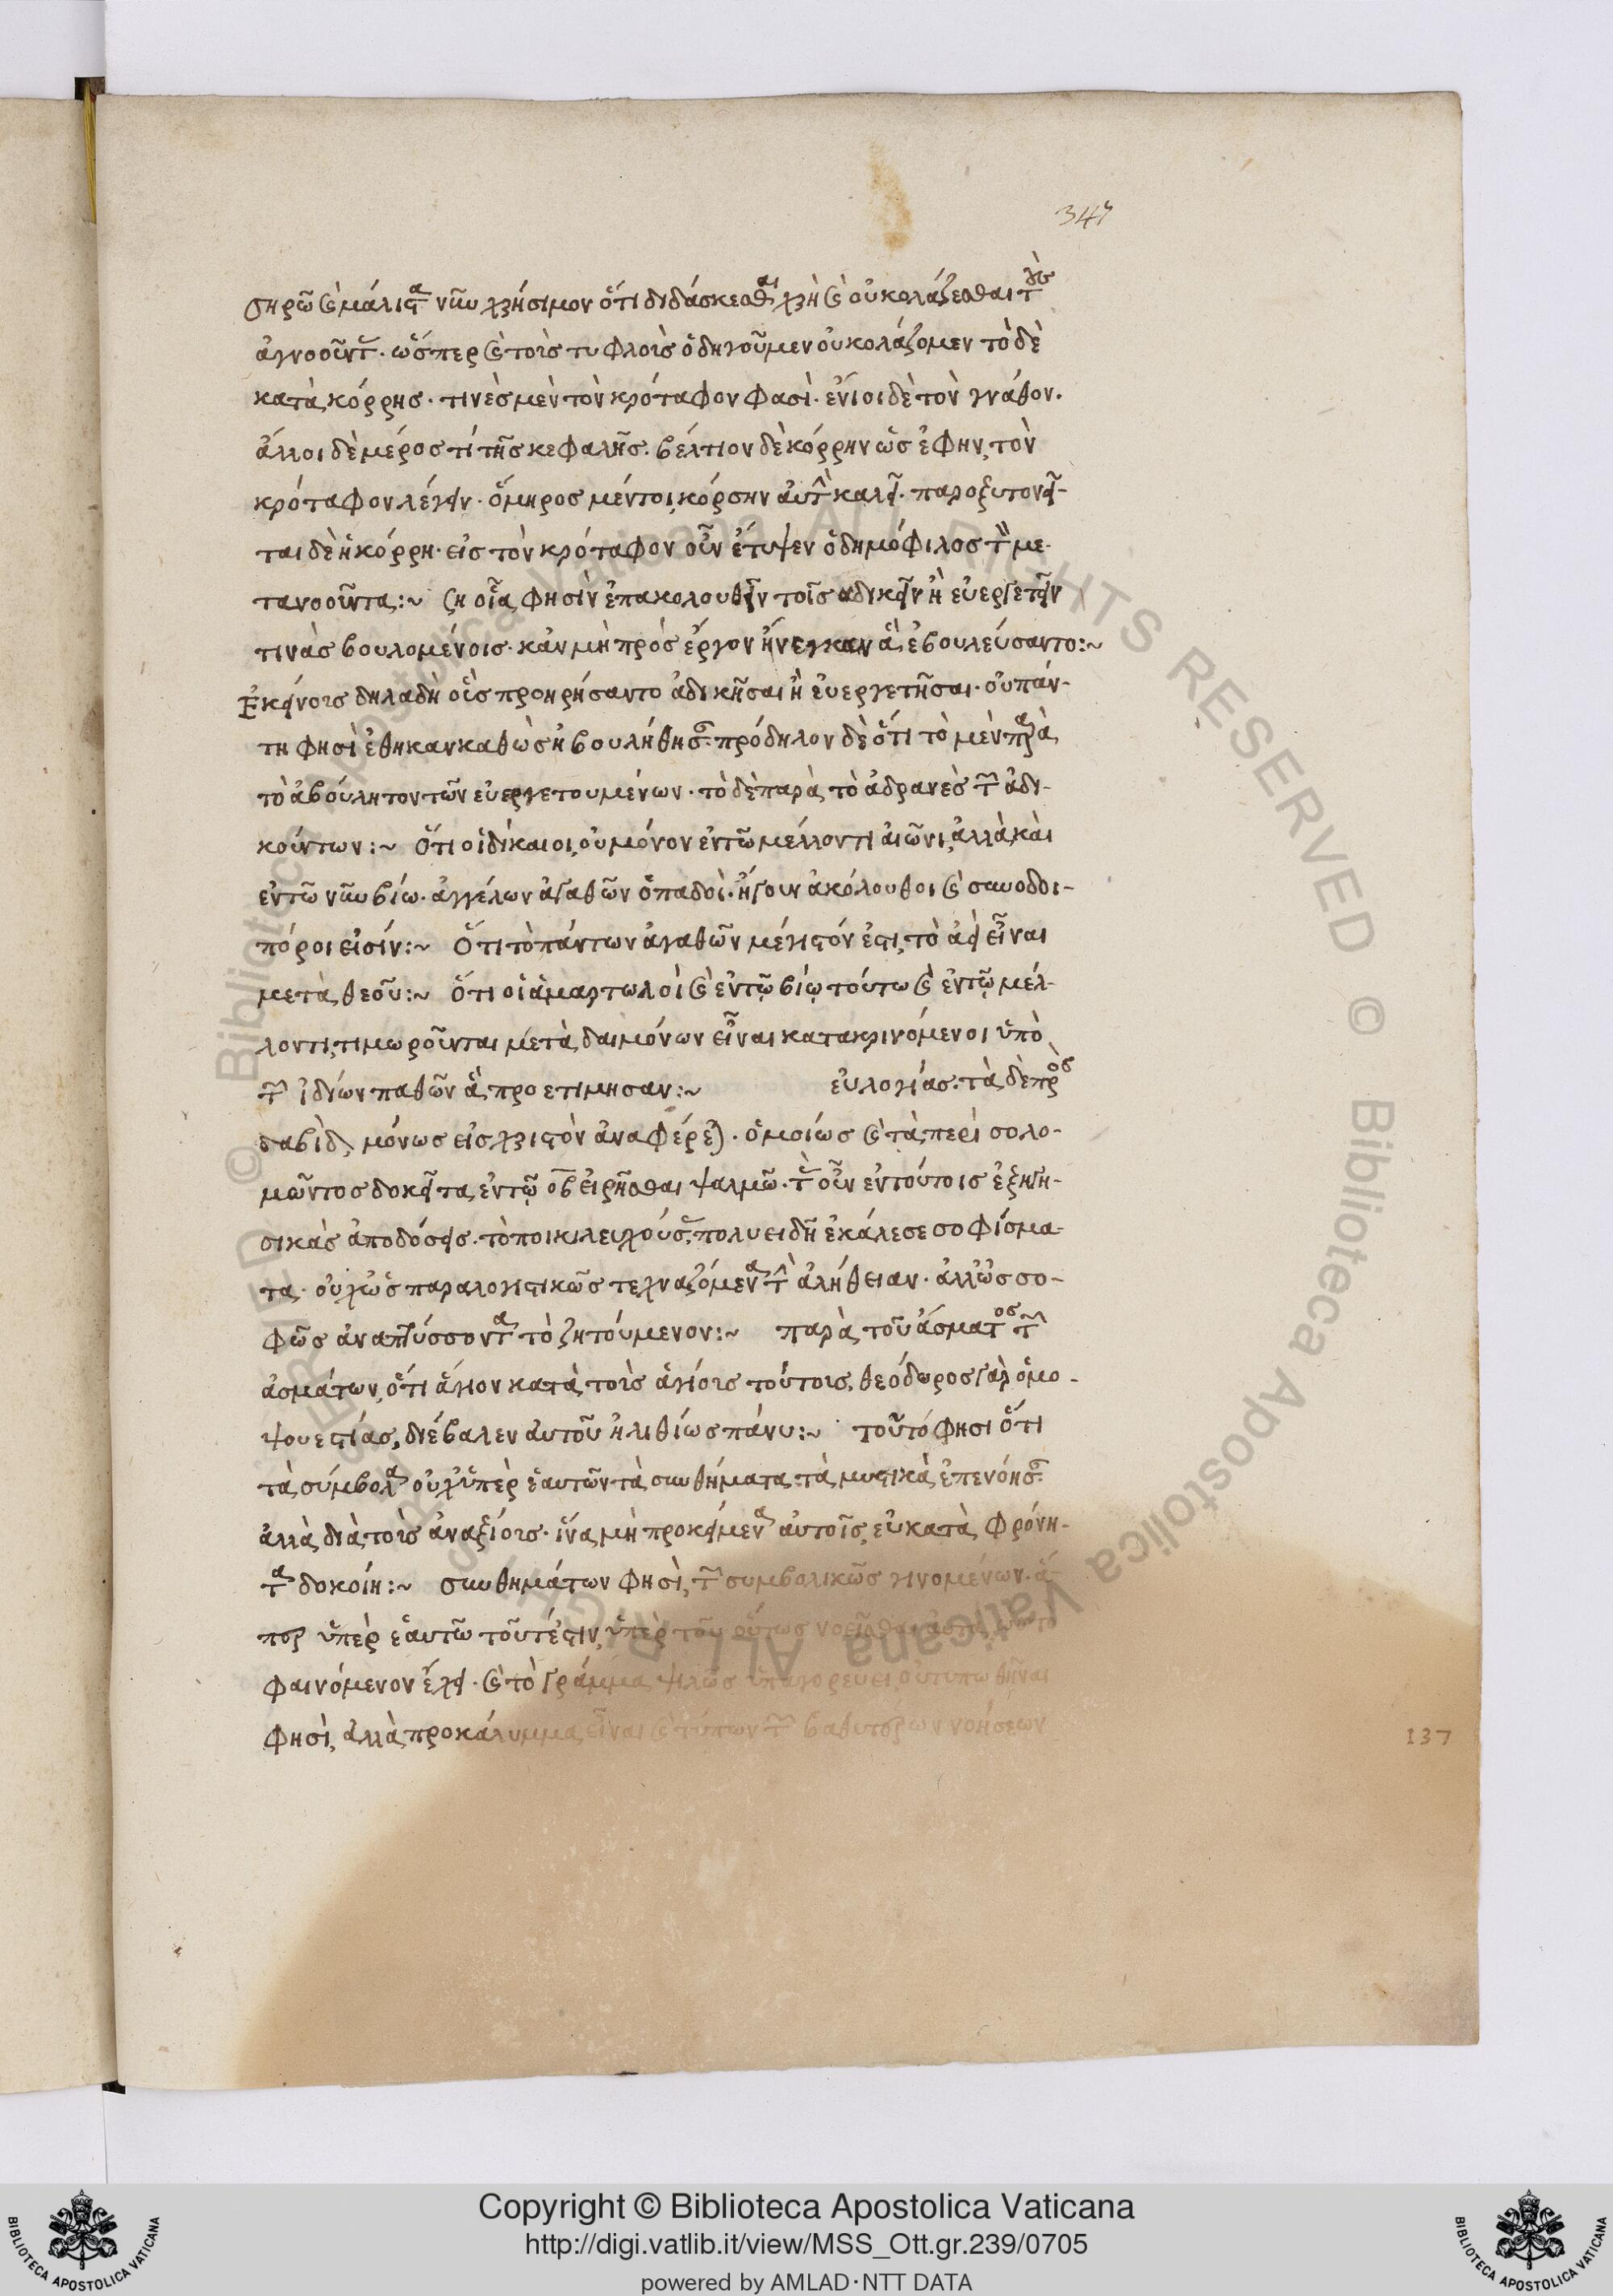 347
σηρῶ καὶ μάλιστα νῦν χρήσιμον ὅτι διδάσκεσθαι χρὴ καὶ οὐ κολάζεσθαι τοὺς
ἀγνοοῦντας. ὥσπερ καὶ τοὺς τυφλοὺς ὁδηγοῦμεν οὐ κολάζομεν τὸ δὲ
κατὰ κόρρης. τινὲς μὲν τὸν κρόταφον φασὶ. ἔνιοι δὲ τὸν γνάθον.
ἄλλοι δὲ μέρος τί τῆς κεφαλῆς. βέλτιον δὲ κόρρην ὡς ἔφην, τὸν
κρόταφον λέγειν. ὅμηρος μέντοι κόρσην αὐτὴν καλεῖ. παροξυτονεῖ-
ται δὲ ἡ κόρρη. εἰς τὸν κρόταφον οὖν ἔτυψεν ὁ δημόφιλος τὸν με-
τανοοῦντα:~ ζη οἷα φησὶν ἐπακολουθεῖν τοῖς ἀδικεῖν ἢ εὐεργετεῖν
τινὰς βουλομένοις. κἂν μὴ πρὸς ἔργον ἤνεγκαν ἃ ἐβουλεύσαντο:~
Ἐκείνους δηλαδὴ οὓς προηρήσαντο ἀδικῆσαι ἢ εὐεργετῆσαι. οὐ πάν-
τη φησὶ ἔθηκαν καθὼς ἠβουλήθησαν. πρόδηλον δὲ ὅτι τὸ μὲν παρὰ
τὸ ἀβούλητον τῶν εὐεργετουμένων. τὸ δὲ παρὰ τὸ ἀδρανὲς τῶν ἀδι-
κούντων:~ Ὅτι οἱ δίκαιοι, οὐ μόνον ἐν τῶ μέλλοντι αἰῶνι, ἀλλὰ καὶ
ἐν τῶ νῦν βίω. ἀγγέλων ἀγαθῶν ὀπαδοὶ. ἤγουν ἀκόλουθοι καὶ συνοδοι-
πόροι εἰσίν:~ Ὅτι τὸ πάντων ἀγαθῶν μέγιστόν ἐστι, τὸ ἀεὶ εἶναι
μετὰ θεοῦ:~ Ὅτι οἱ ἁμαρτωλοὶ καὶ ἐν τῷ βίῳ τούτω καὶ ἐν τῷ μέλ-
λοντι, τιμωροῦνται μετὰ δαιμόνων εἶναι κατακρινόμενοι ὑπὸ
τῶν ἰδίων παθῶν ἃ προετίμησαν:~ εὐλογίας. τὰ δὲ πρὸς
δαβὶδ, μόνως εἰς χριστὸν ἀναφέρει. ὁμοίως καὶ τὰ περὶ σολο-
μῶντος δοκεῖ τὰ ἐν τῷ οβ εἰρῆσθαι ψαλμῶ. τὰς οὖν ἐν τούτοις ἐξηγη-
σικὰς ἀποδόσεις. τὸ ποικίλε ἐχούσας, πολυειδῆ ἐκάλεσε σοφίσμα-
τα. οὐχ ὡς παραλογιστικῶς τεχναζόμενα τὴν ἀλήθειαν. ἀλλ' ὡς σο-
φῶς ἀναπτύσσοντα τὸ ζητούμενον:~ παρὰ τοῦ ἄσματος τῶν
ἀσμάτων, ὅτι ἅγιον κατὰ τοὺς ἁγίους τούτους, θεόδωρος γὰρ ὁ μο-
ψουεστίας, διέβαλεν αὐτοῦ ἠλιθίως πάνυ:~ τοῦτό φησι ὅτι
τὰ σύμβολα οὐχ ὑπὲρ ἑαυτῶν τὰ συνθήματα τὰ μυστικὰ ἐπενόησαν
ἀλλὰ διὰ τοὺς ἀναξίους. ἵνα μὴ προκείμενα αὐτοῖς, εὐκατὰ φρόνη-
τα δοκοίη:~ συνθημάτων φησὶ, τῶν συμβολικῶς γινομένων. ἅ-
περ ὑπὲρ ἑαυτῶ τουτέστιν, ὑπὲρ τοῦ οὕτως νοεῖσθαι
φαινόμενον ἔχει. καὶ τὸ γράμμα ψιλῶς ὑπαγορεύει, οὐ τυπωθῆναι
φησὶ, ἀλλὰ προκάλυμμα εἶναι καὶ τύπων τῶν βαθυτέρων νοήσεων
137
Copyright © Biblioteca Apostolica Vaticana
http://digi.vatlib.it/view/MSS_Ott.gr.239/0705
powered by AMLAD·NTT DATA